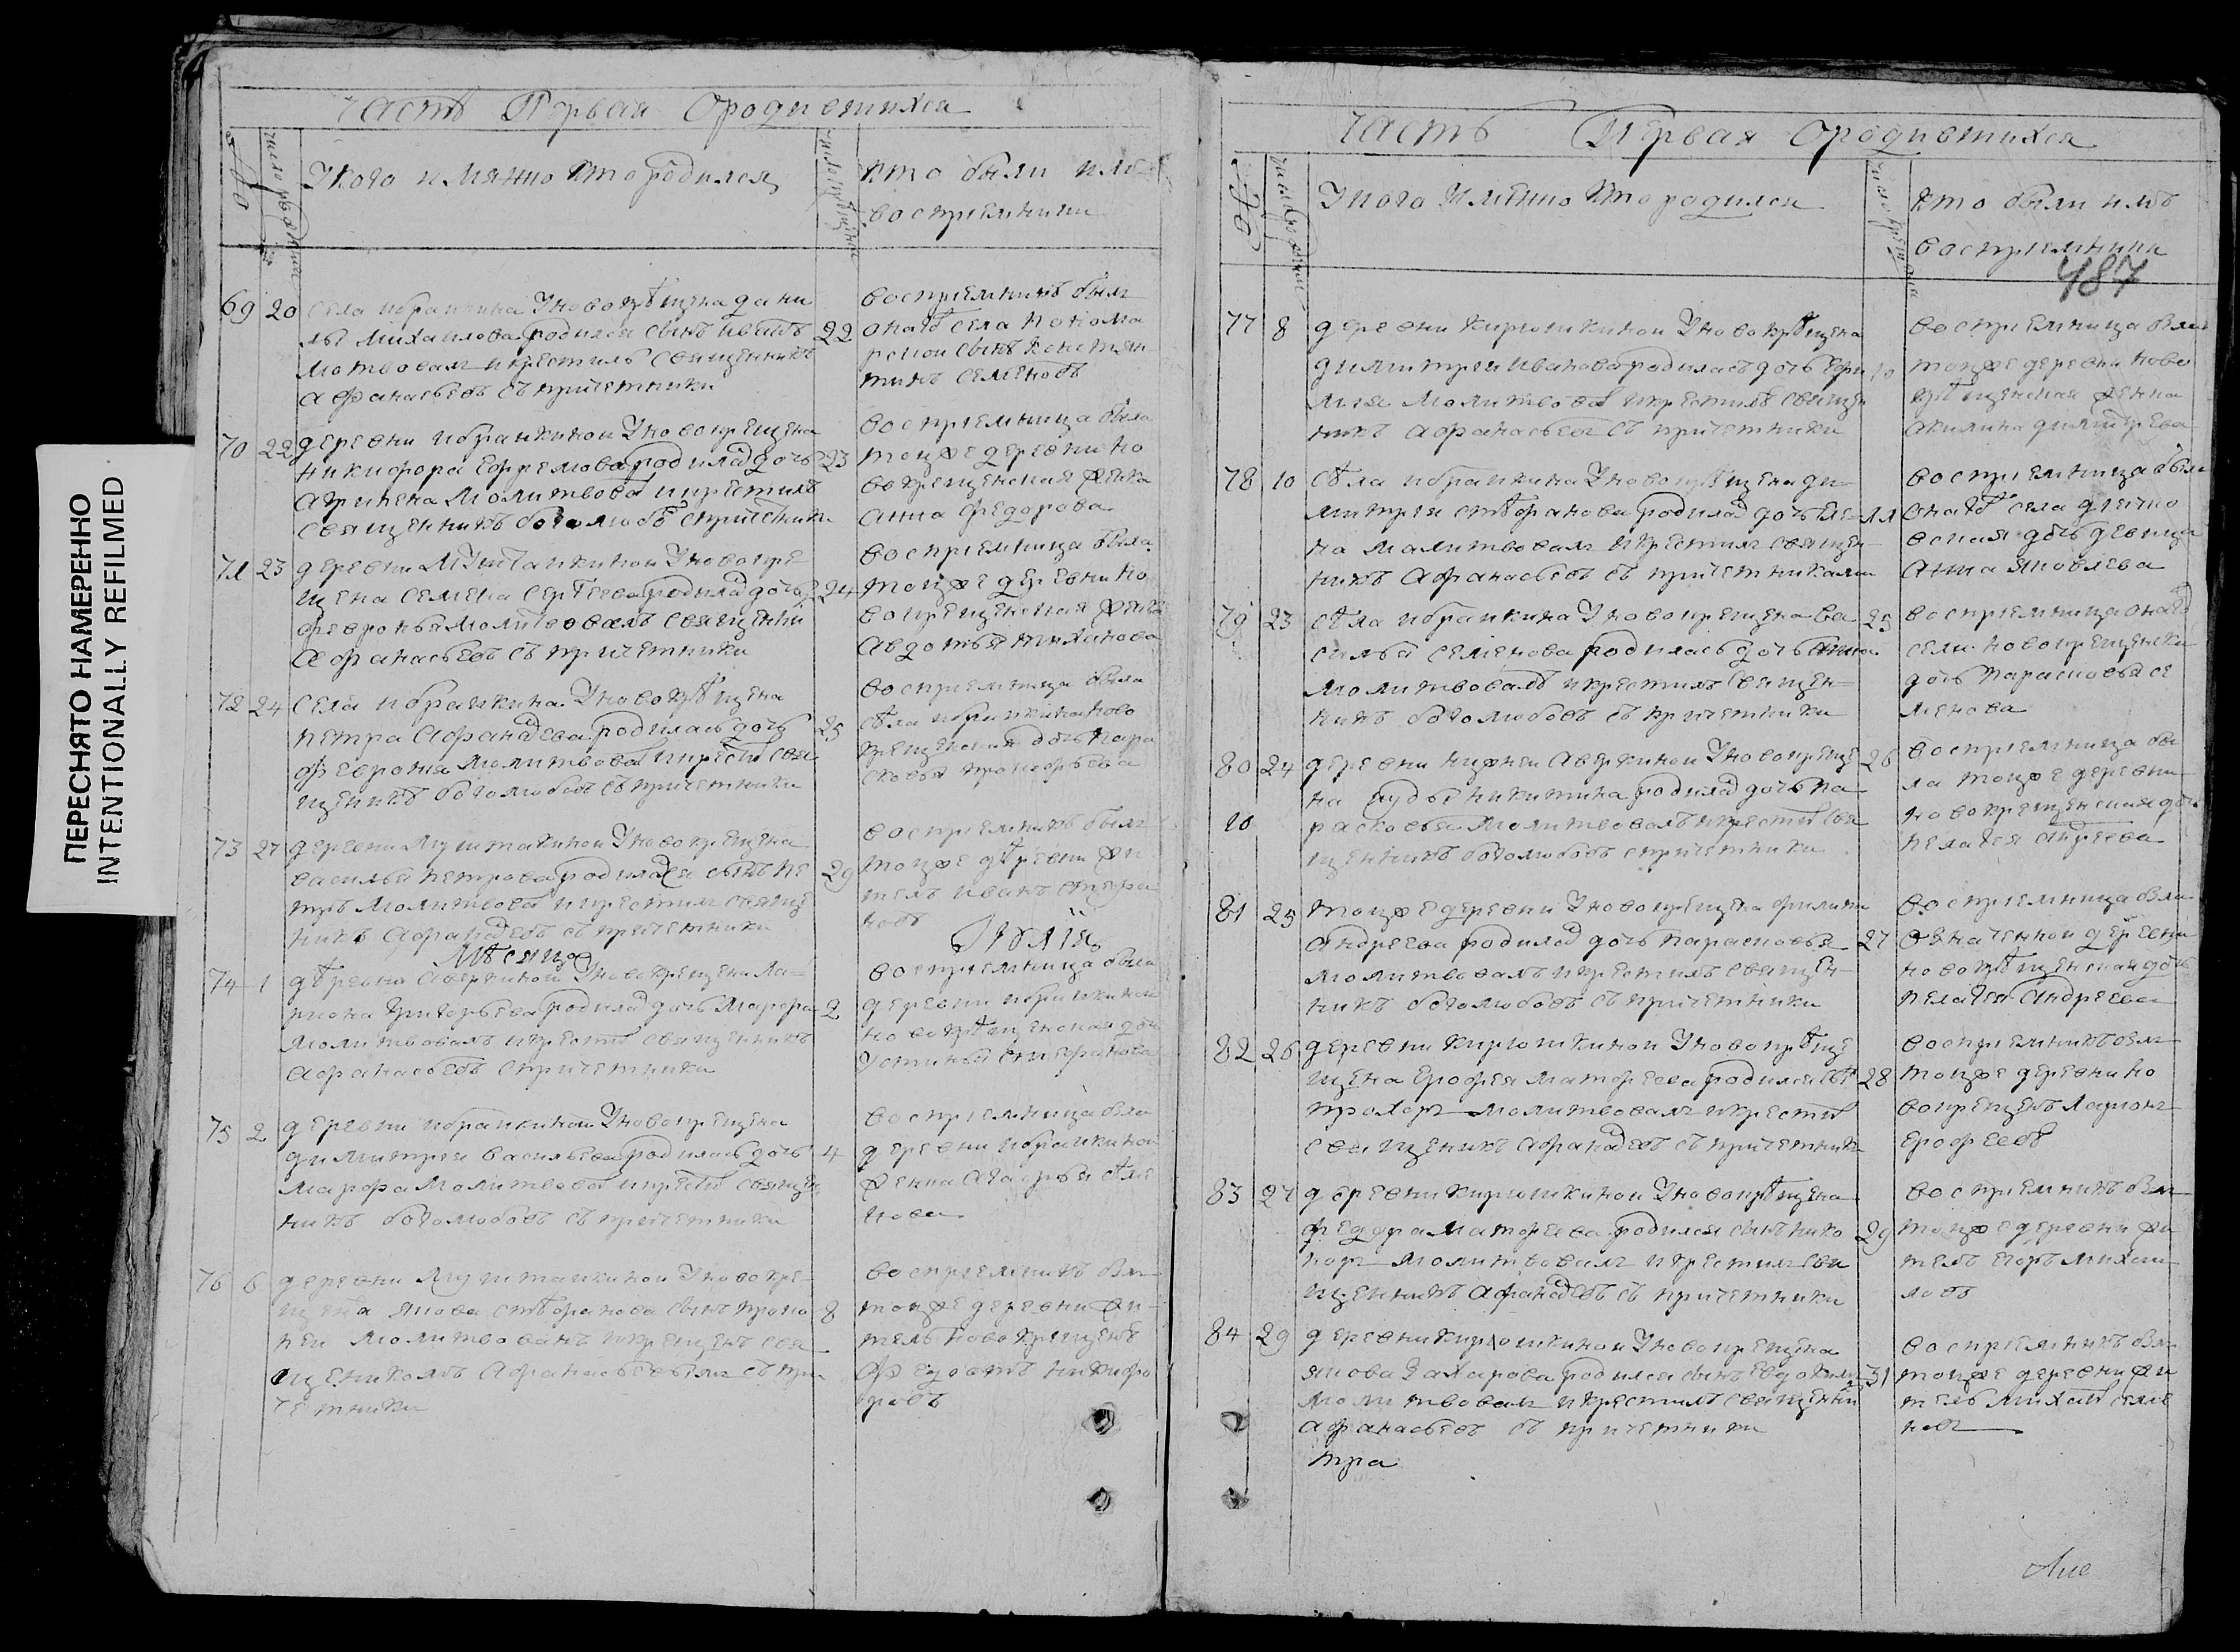 ПЕРЕСНЯТО НАМЕРЕННО
INTENTIONALLY REFILMED
часть Первая Ородившихся
Укого имянно кто родился
кто были
восприемники
69 20 села ибраикина Уновокрѣщена дани
лы михаилова родился сынъ иванъ 22
молтвовал и крестилъ священникъ
афанасьевъ съ причетники
восприемникъ был
онагѡ села
сынъ констан
тинъ семеновъ
70 22 деревни ибраикиной Уновокрещена
никифора ефремова родилась дочь 23
молитвовал и крестилъ
священникъ боголюбовъ с причетники
восприемница была
тоиже деревни но
вокрещенская женка
анна федорова
71 23 деревни Уновокре
щена семена сергеева родилась дочь 24
февронья молитвовалъ священни
афанасьевъ съ причетники
восприемница была
тоиже деревни но
вокрещенская женка
авдотья
72 24 села ибраикина Уновокрѣщена
петра афанасева родилась дочь 25
феврония молитвовал и крести свя
щеникъ боголюбовъ съ причетники
восприемница была
сѣла ибраикина ново
крещенская дочь пара
сковья
73 27 деревни Уновокрещена
василья петрова родился сынъ пе 29
тръ молитвовал и крестил свяще
никъ афанасевъ съ причетники
восприемникъ былъ
тоиже дѣревни жи
тель иванъ
новъ
Мѣсяца Июлія
74 1 дѣревни аверкиной Уновокрещена ла
риона григорьева родилась дочь марфа 2
молитвовалъ и крести священникъ
афанасьевъ с причетники
восприемница была
деревни ибраикиной
новокрѣщенская дочь
устинья
75 2 деревни ибраикиной Уновокрещена
димитрея васильева родилась дочь 4
марфа молитвовал и крести священ
никъ боголюбовъ съ причетники
восприемница была
деревни ибраикиной
женка
нова
76 6 деревни Уновокре
щена якова стѣфанова сынъ проко 8
пеи молитвованъ и крещенъ свя
щеникомъ афанасьевымъ съ при
четники
восприемникъ был
тоиже деревни жи
тель новокрещенъ
федотъ никифо
ровъ
часть Первая Ородившихся
Укого имянно кто родился
кто были имъ
восприемники
487
77 8 деревни кирюшкиной Уновокрѣщена
димитреи иванова родилась дочь ефи 10
мия молитвовал и крестилъ священ
никъ афанасьевъ съ причетники
восприемница была
тоиже деревни ново
крѣщенская женка
акилина димитрева
78 10 сѣла ибраикина Уновокрѣщена ди
митрея стѣфанова родилась дочь еле 11
на молитвовалъ и крестил священ
никъ афанасьевъ съ причетниками
восприемница была
онагѡ села
дочь девица
анна яковлева
79 23 сѣла ибраикина Уновокрещена ва 25
силья семенова родилась дочь анна
молитвовалъ и крестилъ священ
никъ боголюбовъ съ причетники
восприемница онагѡ
села новокрещенска
дочь парасковья се
менова
80 24 деревни нижнеи аверкиной Уновокреще 26
на никитина родилась дочь па
10 расковья молитвовалъ и крести свя
щенникъ боголюбовъ с причетники
восприемница бы
ла тоиже деревни
новокрещенская дочь
пелагея андреева
81 25 тоиже деревни Уновокрещена филипа
андреева родилась дочь парасковья 27
молитвовалъ и крестилъ священ
никъ боголюбовъ съ причетники
восприемница была
означенной деревни
новокрѣщенская дочь
пелагея андреева
82 26 деревни кирюшкиной Уновокрѣще
щена ерофея матфеева родился сынъ 28
прохоръ молитвовалъ и крести
священикъ афанасевъ съ причетники
восприемникъ был
тоиже деревни но
вокрещенъ ларионъ
ерофеевъ
83 27 деревни кирюшкиной Уновокрѣщена
федора матфеева родился сынъ ника 29
норъ молитвовалъ и крестил свя
щенникъ афанасевъ съ причетники
восприемникъ был
тоиже деревни жи
тель егоръ михаи
ловъ
84 29 деревни кирюшкиной Уновокрещена
якова захарова родился сынъ евдокимъ 31
молитвовалъ и крестилъ священни
афанасьевъ съ причетники
тра
восприемникъ был
тоиже деревни жи
тель
новъ